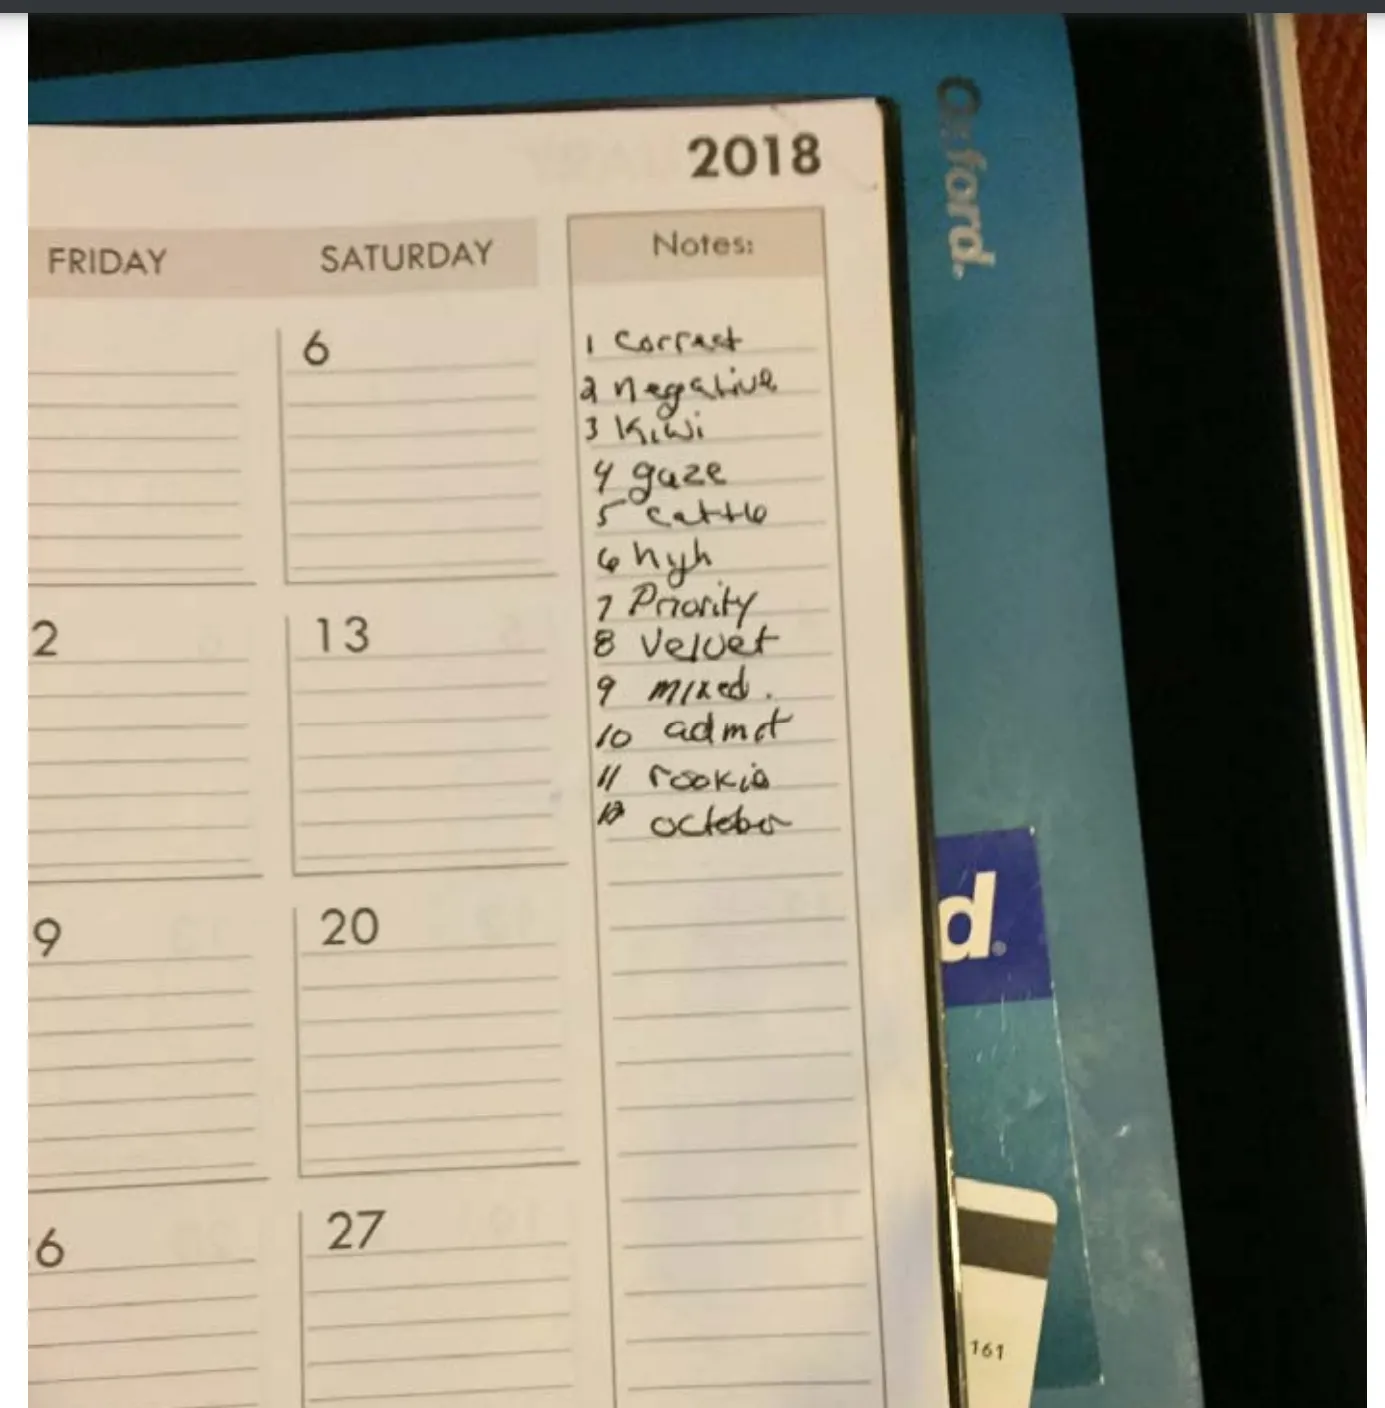 2018
FRIDAY SATURDAY Notes:
Oxford.
6
1 Correct
2 negative
3 Kiwi
4 gaze
5 cattle
6
7 Priority
2 13
8 Velvet
9 mixed.
10
11 rookie
12 october
9 20
d.
6 27
161